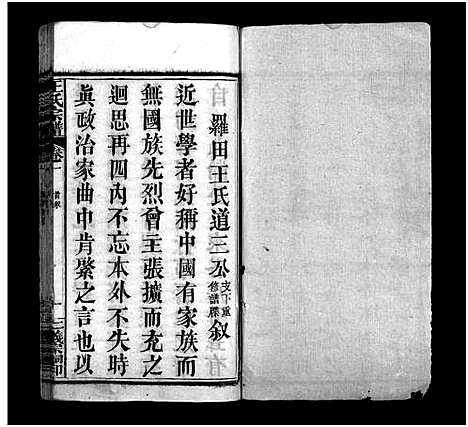 羅田王氏道三公支下重修譜牒敘
近世學者好稱中國有家族而
無國族先烈曾主張擴而充之
迴思再四內不忘本外不失時
眞政治家曲中肯綮之言也以
王氏宗譜 卷一